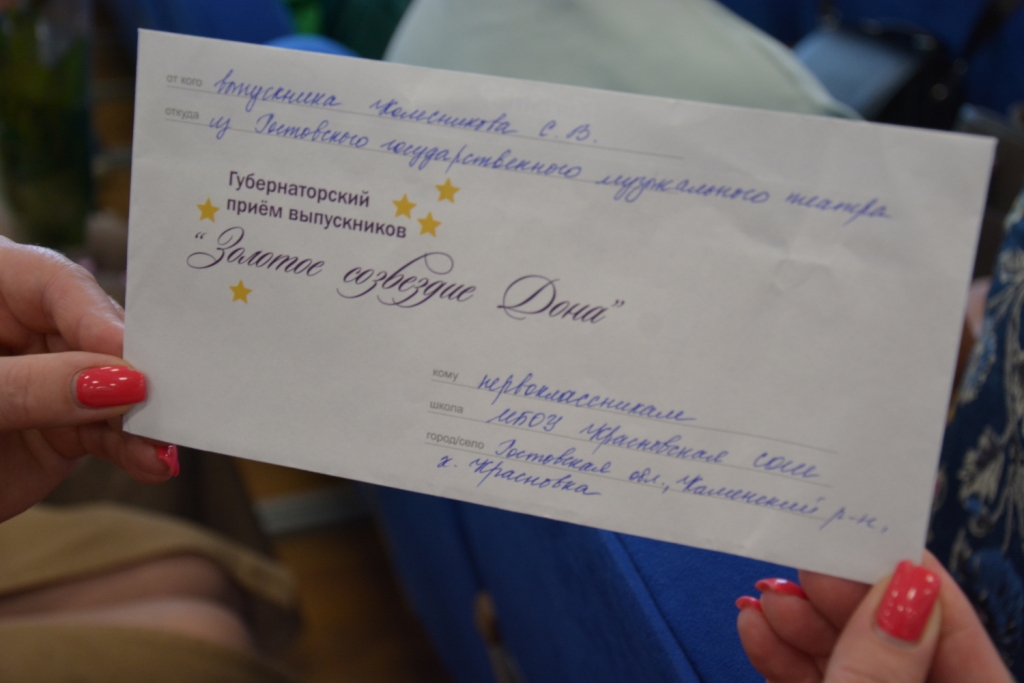 от кого выпускника Колесникова С. В.
откуда из Ростовского государственного музыкального театра
Губернаторский
приём выпускников
“Золотое созвездие Дона”
кому первоклассникам
школа МБОУ Красновская сош
город/село Ростовская обл., Каменский р-н,
х. Красновка